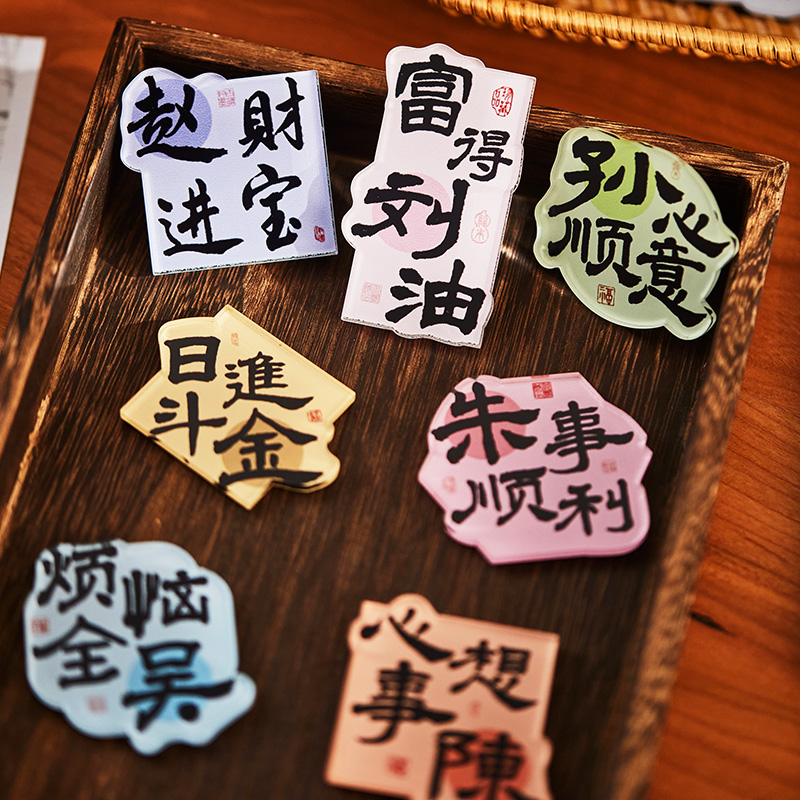 赵財
进宝
富
得
刘
油
孙心
顺意
福
日進
斗金
朱事
顺利
烦恼
全吴
心想
事陳